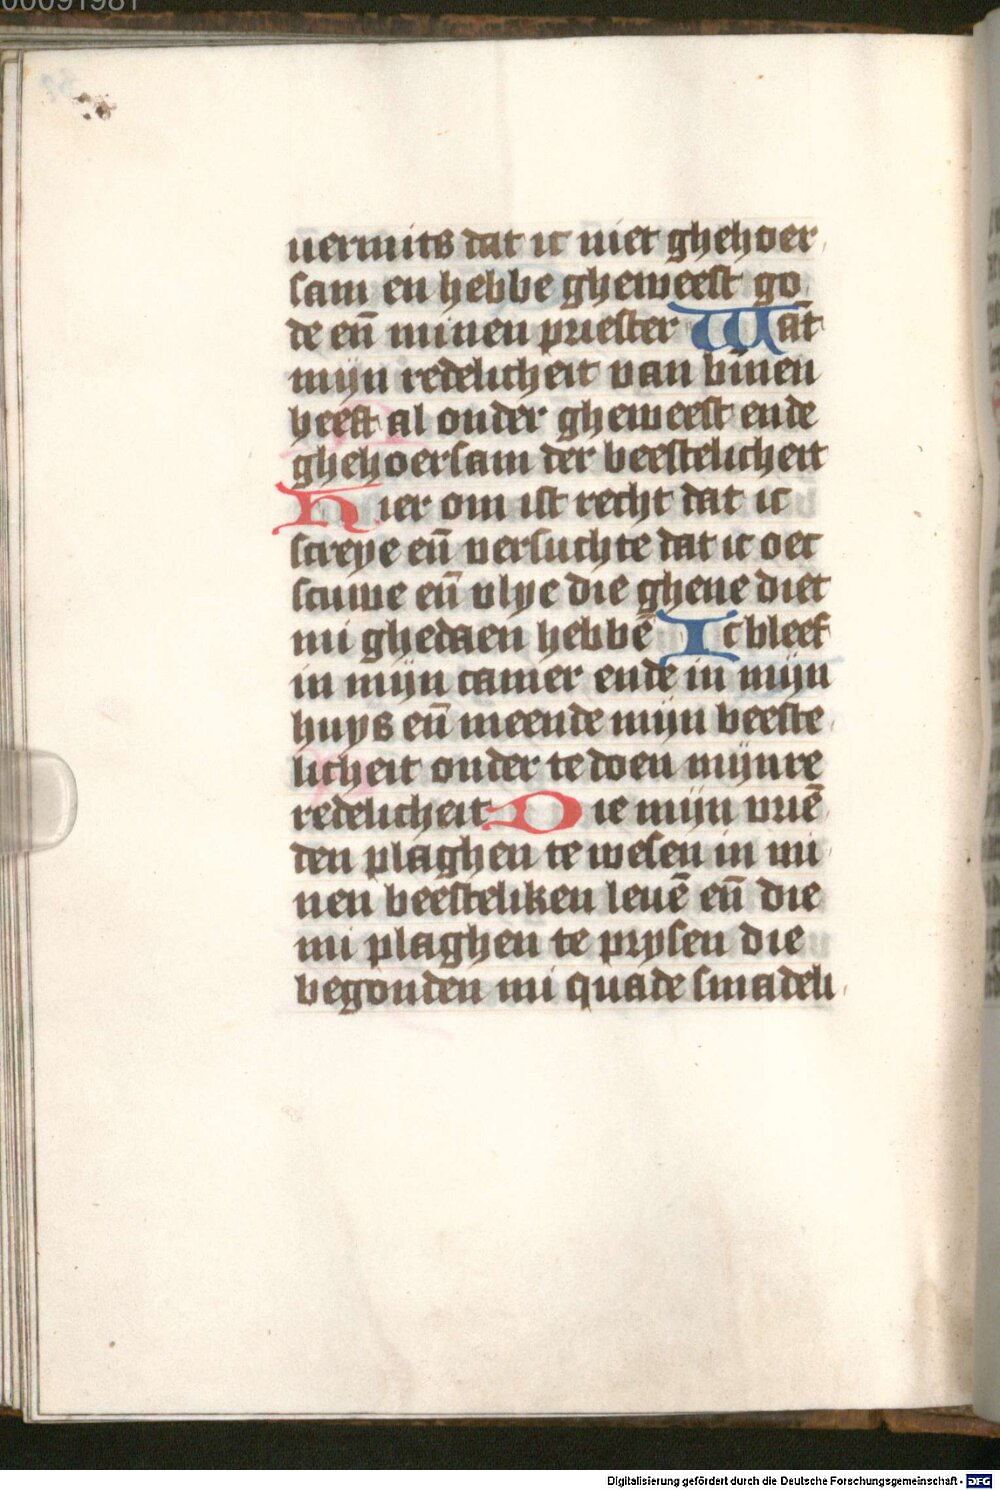 00091981
uermits dat ic niet ghehoer
sam en hebbe gheweest go
de en̄ minen priester Wāt
mijn redelicheit van bīnen
heeft al onder gheweest ende
ghehoersam der beestelicheit
Hier om ist recht dat ic
screye en̄ versuchte dat ic oec
scuwe en̄ vlye die ghene diet
mi ghedaen hebbē Ic bleef
in mijn camer ende in mijn
huys en̄ meende mijn beeste
licheit onder te doen mijnre
redelicheit Die mijn vriē
den plaghen te wesen in mi
nen beesteliken leuē en̄ die
mi plaghen te prysen die
begonden mi quade smadeli
Digitalisierung gefördert durch die Deutsche Forschungsgemeinschaft - DFG